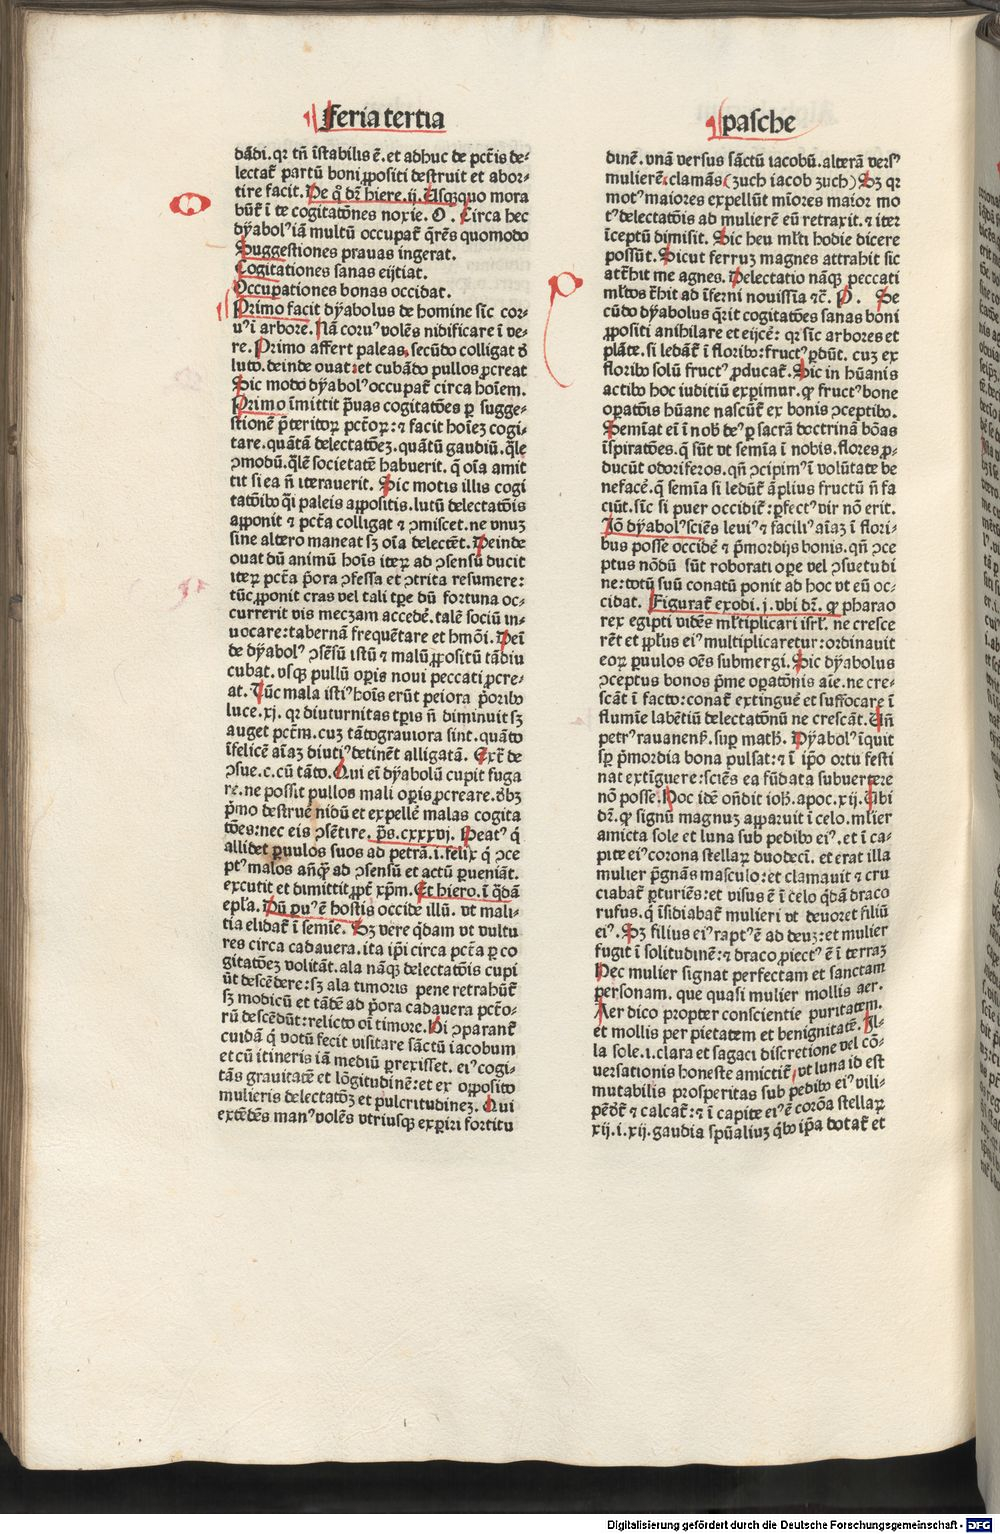 feria tertia
dādi. qr tñ īstabilis ē. et adhuc de pct̄is de⸗
lectat̄ partū boni ꝓpositi destruit et abor⸗
tire facit. De q̊ dr̄ hiere. ij. Usqꝫquo mora
būt̄ ī te cogitatōnes noxie. O. Circa hec
dyabolꝰ iā multū occupat̄ q̄rēs quomodo
Suggestiones prauas ingerat.
Cogitationes sanas eijtiat.
Occupationes bonas occidat.
Primo facit dyabolus de homine sic̄ cor⸗
uꝰ ī arbore. Nā coruꝰ volēs nidificare ī ve⸗
re. Primo affert paleas, secūdo colligat d̄
luto. deinde ouat: et cubādo pullos ꝓcreat
Sic modo dyabolꝰ occupat̄ circa hoīem.
Primo īmittit p̄uas cogitatōes ꝑ sugge⸗
stionē p̄teritoꝝ pct̄oꝝ: ⁊ facit hoīeꝫ cogi⸗
tare. quātā delectatōeꝫ. quātū gaudiū. q̄le
ꝯmodū. q̄lē societatē habuerit. ꝙ oīa amit
tit si ea n̄ iterauerit. Sic motis illis cogi
tatōibꝰ q̄i paleis appositis. lutū delectatōis
apponit ⁊ pct̄a colligat ⁊ ꝯmiscet. ne vnuꝫ
sine altero maneat sꝫ oīa delectēt. Deinde
ouat dū animū hoīs iteꝝ ad ꝯsensū ducit
iteꝝ pct̄a p̄ora ꝯfessa et ꝯtrita resumere:
tūc ꝓponit cras vel tali tp̄e dū fortuna oc⸗
currerit vis mecꝫam accedē. talē sociū in⸗
uocare: tabernā frequētare et hmōi. Dei
de dyabolꝰ ꝯsēsū istū ⁊ malū ꝓpositū tādiu
cubat. vsqꝫ pullū oꝑis noui peccati ꝓcre⸗
at. Tūc mala istiꝰ hoīs erūt peiora p̄oribꝰ
luce. xj. qr diuturnitas tꝑis n̄ diminuit sꝫ
auget pct̄m. cuꝫ tātograuiora sint. quāto
īfelicē aīaꝫ diutiꝰ detinēt alligatā. Ext̄ de
ꝯsue. c. cū tāto. Qui eī dyabolū cupit fuga
re. ne possit pullos mali oꝑis ꝓcreare. dꝫ
p̄mo destruē nidū et expellē malas cogita
tōes: nec eis ꝯsētire. ps̄. cxxxvj. Beatꝰ q̇
allidet ꝑuulos suos ad petrā. i. felix q̇ ꝯce
ptꝰ malos añq̄ꝫ ad ꝯsensū et actū ꝑueniāt.
excutit et dimittit ꝓpt̄ xp̄m. Et hiero. ī q̄dā
epl̄a. Dū ꝑuꝰ ē hostis occide illū. vt mali⸗
tia elidat̄ ī semīe. Sꝫ vere q̄dam vt vultu
res circa cadauera. ita ip̄i circa pct̄a ꝑ co
gitatōeꝫ volitāt. ala nāqꝫ delectatōis cupi
ūt descēdere: sꝫ ala timoris pene retrahūt̄
sꝫ modicū et tādē ad p̄ora cadauera pct̄o⸗
rū descēdūt: relicto oī timore. Hi ꝯparant̄
cuidā q̇ votū fecit visitare sāctū iacobum
et cū itineris iā mediū prexisset. eiꝰ cogi⸗
tās grauitatē et lōgitudinē: et ex opposito
mulieris delectatōꝫ et pulcritudineꝫ. Qui
extēdēs manꝰ volēs vtriusqꝫ exꝑiri fortitu
pasche
dinē. vnā versus sāctū iacobū. alterā versꝰ
mulierē: clamās (zuch iacob zuch) Sꝫ qr
motꝰ maiores expellūt mīores maior mo
tꝰ delectatōis ad mulierē eū retraxit. ⁊ iter
īceptū dimisit. Sic heu ml̄ti hodie dicere
possūt. Sicut ferruꝫ magnes attrahit sic
atr̄hit me agnes. Delectatio nāqꝫ peccati
ml̄tos tr̄hit ad īferni nouissīa ⁊c̄. P. Se
cūdo dyabolus q̄rit cogitatōes sanas boni
ꝓpositi anihilare et eijcē: qr sic̄ arbores et
plāte. si ledāt̄ ī floribꝰ: fructꝰ ꝑdūt. cuꝫ ex
floribꝰ solū fructꝰ ꝓducat̄. Sic in hūanis
actibꝰ hoc iuditiū exꝑimur. ꝙ fructꝰ bone
oꝑatōis hūane nascūt̄ ex bonis ꝯceptibꝰ.
Semīat eī ī nob̄ deꝰ ꝑ sacrā doctrinā bōas
īspiratōes. q̄ sūt vt semīa ī nobis. flores ꝓ⸗
ducūt odoriferos. qñ ꝯcipimꝰ ī volūtate be
nefacē. q̄ semīa si ledūt̄ āplius fructū n̄ fa
ciūt. sic̄ si puer occidit̄: ꝑfectꝰ vir nō erit.
Iō dyabolꝰ sciēs leuiꝰ ⁊ faciliꝰ aīaꝫ ī flori⸗
bus posse occidē ⁊ p̄mordijs bonis. qñ ꝯce
ptus nōdū sūt roborati oꝑe vel ꝯsuetudi
ne: totū suū conatū ponit ad hoc vt eū oc⸗
cidat. Figurat̄ exodi. j. vbi dr̄. ꝙ pharao
rex egipti vidēs ml̄tiplicari isrl̄. ne cresce
rēt et ppl̄us eiꝰ multiplicaretur: ordinauit
eoꝝ ꝑuulos oēs submergi. Sic dyabolus
ꝯceptus bonos p̄me oꝑatōnis aīe. ne cre⸗
scāt ī facto: conat̄ extinguē et suffocare ī
flumīe labētiū delectatōnū ne crescāt. Uñ
petrꝰ rauanenꝭ. suꝑ math̄. Dyabolꝰ īquit
sꝑ p̄mordia bona pulsat: ⁊ ī ip̄o ortu festi
nat extīguere: sciēs ea fūdata subuertere
nō posse. Hoc idē oñdit ioh̄. apoc. xij. Ubi
dr̄. ꝙ signū magnuꝫ apparuit ī celo. ml̄ier
amicta sole et luna sub pedibꝰ eiꝰ. et ī ca⸗
pite eiꝰ corona stellaꝝ duodecī. et erat illa
mulier p̄gnās masculo: et clamauit ⁊ cru
ciabat̄ ꝑturiēs: et visus ē ī celo q̄dā draco
rufus. q̇ īsidiabat̄ mulieri vt deuoret filiū
eiꝰ. Sꝫ filius eiꝰ raptꝰ ē ad deuꝫ: et mulier
fugit ī solitudinē: ⁊ draco ꝓiectꝰ ē ī terraꝫ
Hec mulier signat perfectam et sanctam
personam. que quasi mulier mollis aer.
Aer dico propter conscientie puritatem.
et mollis per pietatem et benignitatē. Il⸗
la sole. i. clara et sagaci discretione vel cō⸗
uersationis honeste amictit̄, vt luna id est
mutabilis prosperitas sub pedibꝰ eiꝰ vili⸗
pēdt̄ ⁊ calcat̄: ⁊ ī capite eiꝰ ē corōa stellaꝝ
xij. i. xij. gaudia spūaliuꝫ q̇bꝰ ip̄a dotat̄ et
Digitalisierung gefördert durch die Deutsche Forschungsgemeinschaft - DFG